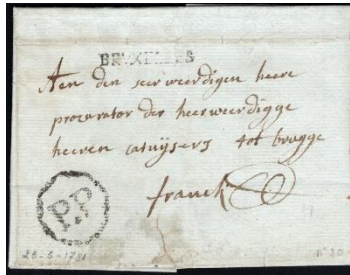 BRUXELLES
Aen den seer weerdigen heere
procurator der heerweerdigge
heeren catuysers tot brugge
franck
P.P
28-6-1781
n° 20